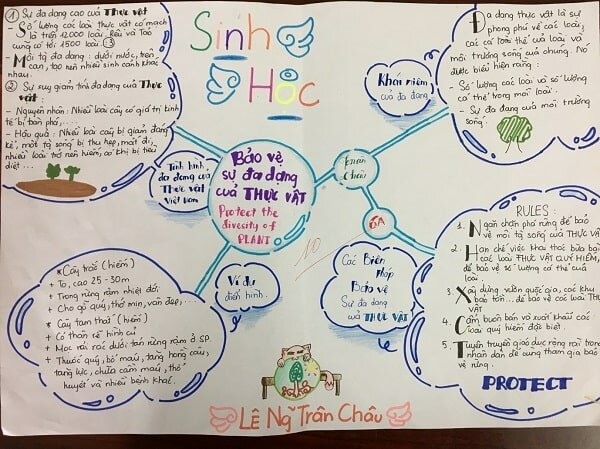 Sinh
Học
① Sự đa dạng cao của THỰC VẬT
- Số lượng các loài thực vật có mạch
là trên 12000 loài, Rêu và Tảo
cũng có tới 1500 loài
- Môi tự đa dạng: dưới nước, trên
cạn, tạo nên nhiều sinh cảnh khác
nhau.
② Sự suy giảm tính đa dạng của THỰC
VẬT:
- Nguyên nhân: Nhiều loài cây có giá trị kinh
tế bị tàn phá,...
- Hậu quả: Nhiều loài cây bị giảm đáng
kể, môi tự sống bị thu hẹp, mất đi,
nhiều loài trở nên hiếm, có khi bị tiêu
diệt...
Tình hình
đa dạng của
THỰC VẬT
Việt Nam
Bảo vệ
sự đa dạng
của THỰC VẬT
Protect the
divesity of
PLANT
Khái niệm
của đa dạng
Đa dạng thực vật là sự
phong phú về các loài,
các cá thể của loài và
môi trường sống của chúng. Nó
được biểu hiện bằng:
- Số lượng các loài và số lượng
cá thể trong mỗi loài.
- Sự đa dạng của môi trường
sống.
Trân
Châu
6A
10
Ví dụ
điển hình.
* Cây trắc (hiếm)
+ To, cao 25-30m
+ Trong rừng rậm nhiệt đới.
+ Cho gỗ quý, thớ mịn, vân đẹp,...
* Cây tam thất (hiếm)
+ Có thân rễ hình củ
+ Mọc rải rác dưới tán rừng rậm ở SP.
+ Thuốc quý, bổ máu, tăng hồng cầu,
tăng lực, chữa cầm máu, thổ
huyết và nhiều bệnh khác.
Các Biện
Pháp
Bảo vệ
Sự đa dạng
của THỰC VẬT
RULES:
1. Ngăn chặn phá rừng để bảo
vệ môi tự sống của THỰC VẬT
2. Hạn chế việc khai thác bừa bãi
các loài THỰC VẬT QUÝ HIẾM,
để bảo vệ số lượng cá thể của
loài.
3. Xây dựng vườn quốc gia, các khu
bảo tồn... để bảo vệ các loài THỰC
4. Cấm buôn bán và xuất khẩu các
loài quý hiếm đặc biệt.
5. Tuyên truyền giáo dục rộng rãi trong
nhân dân để cùng tham gia bảo
vệ rừng.
PROTECT
Lê Ng̃ Trân Châu